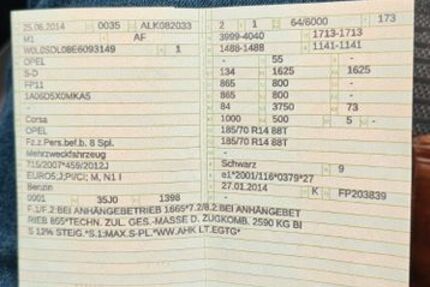 25.06.2014 0035 ALK082033
M1 AF
W0L0SDL08E6093149 1
OPEL
S-D
FP11
1A06D5X0MKA5
-
Corsa
OPEL
Fz.z.Pers.bef.b. 8 Spl.
Mehrzweckfahrzeug
715/2007*459/2012J
EURO5;PI/CI; M, N1 I
Benzin
0001 35J0 1398
2 1 64/6000 173
3999-4040 1713-1713
1488-1488 1141-1141
- 55 -
134 1625 1625
865 800 -
865 800 -
84 3750 73
1000 500 5 -
185/70 R14 88T
185/70 R14 88T
-
Schwarz 9
e1*2001/116*0379*27
27.01.2014 K FP203839
F.1/F.2:BEI ANHÄNGEBETRIEB 1665*7.2/8.2:BEI ANHÄNGEBET
RIEB 865*TECHN. ZUL. GES.-MASSE D. ZUGKOMB. 2590 KG BI
S 12% STEIG.*S.1:MAX.S-PL.*WW.AHK LT.EGTG*